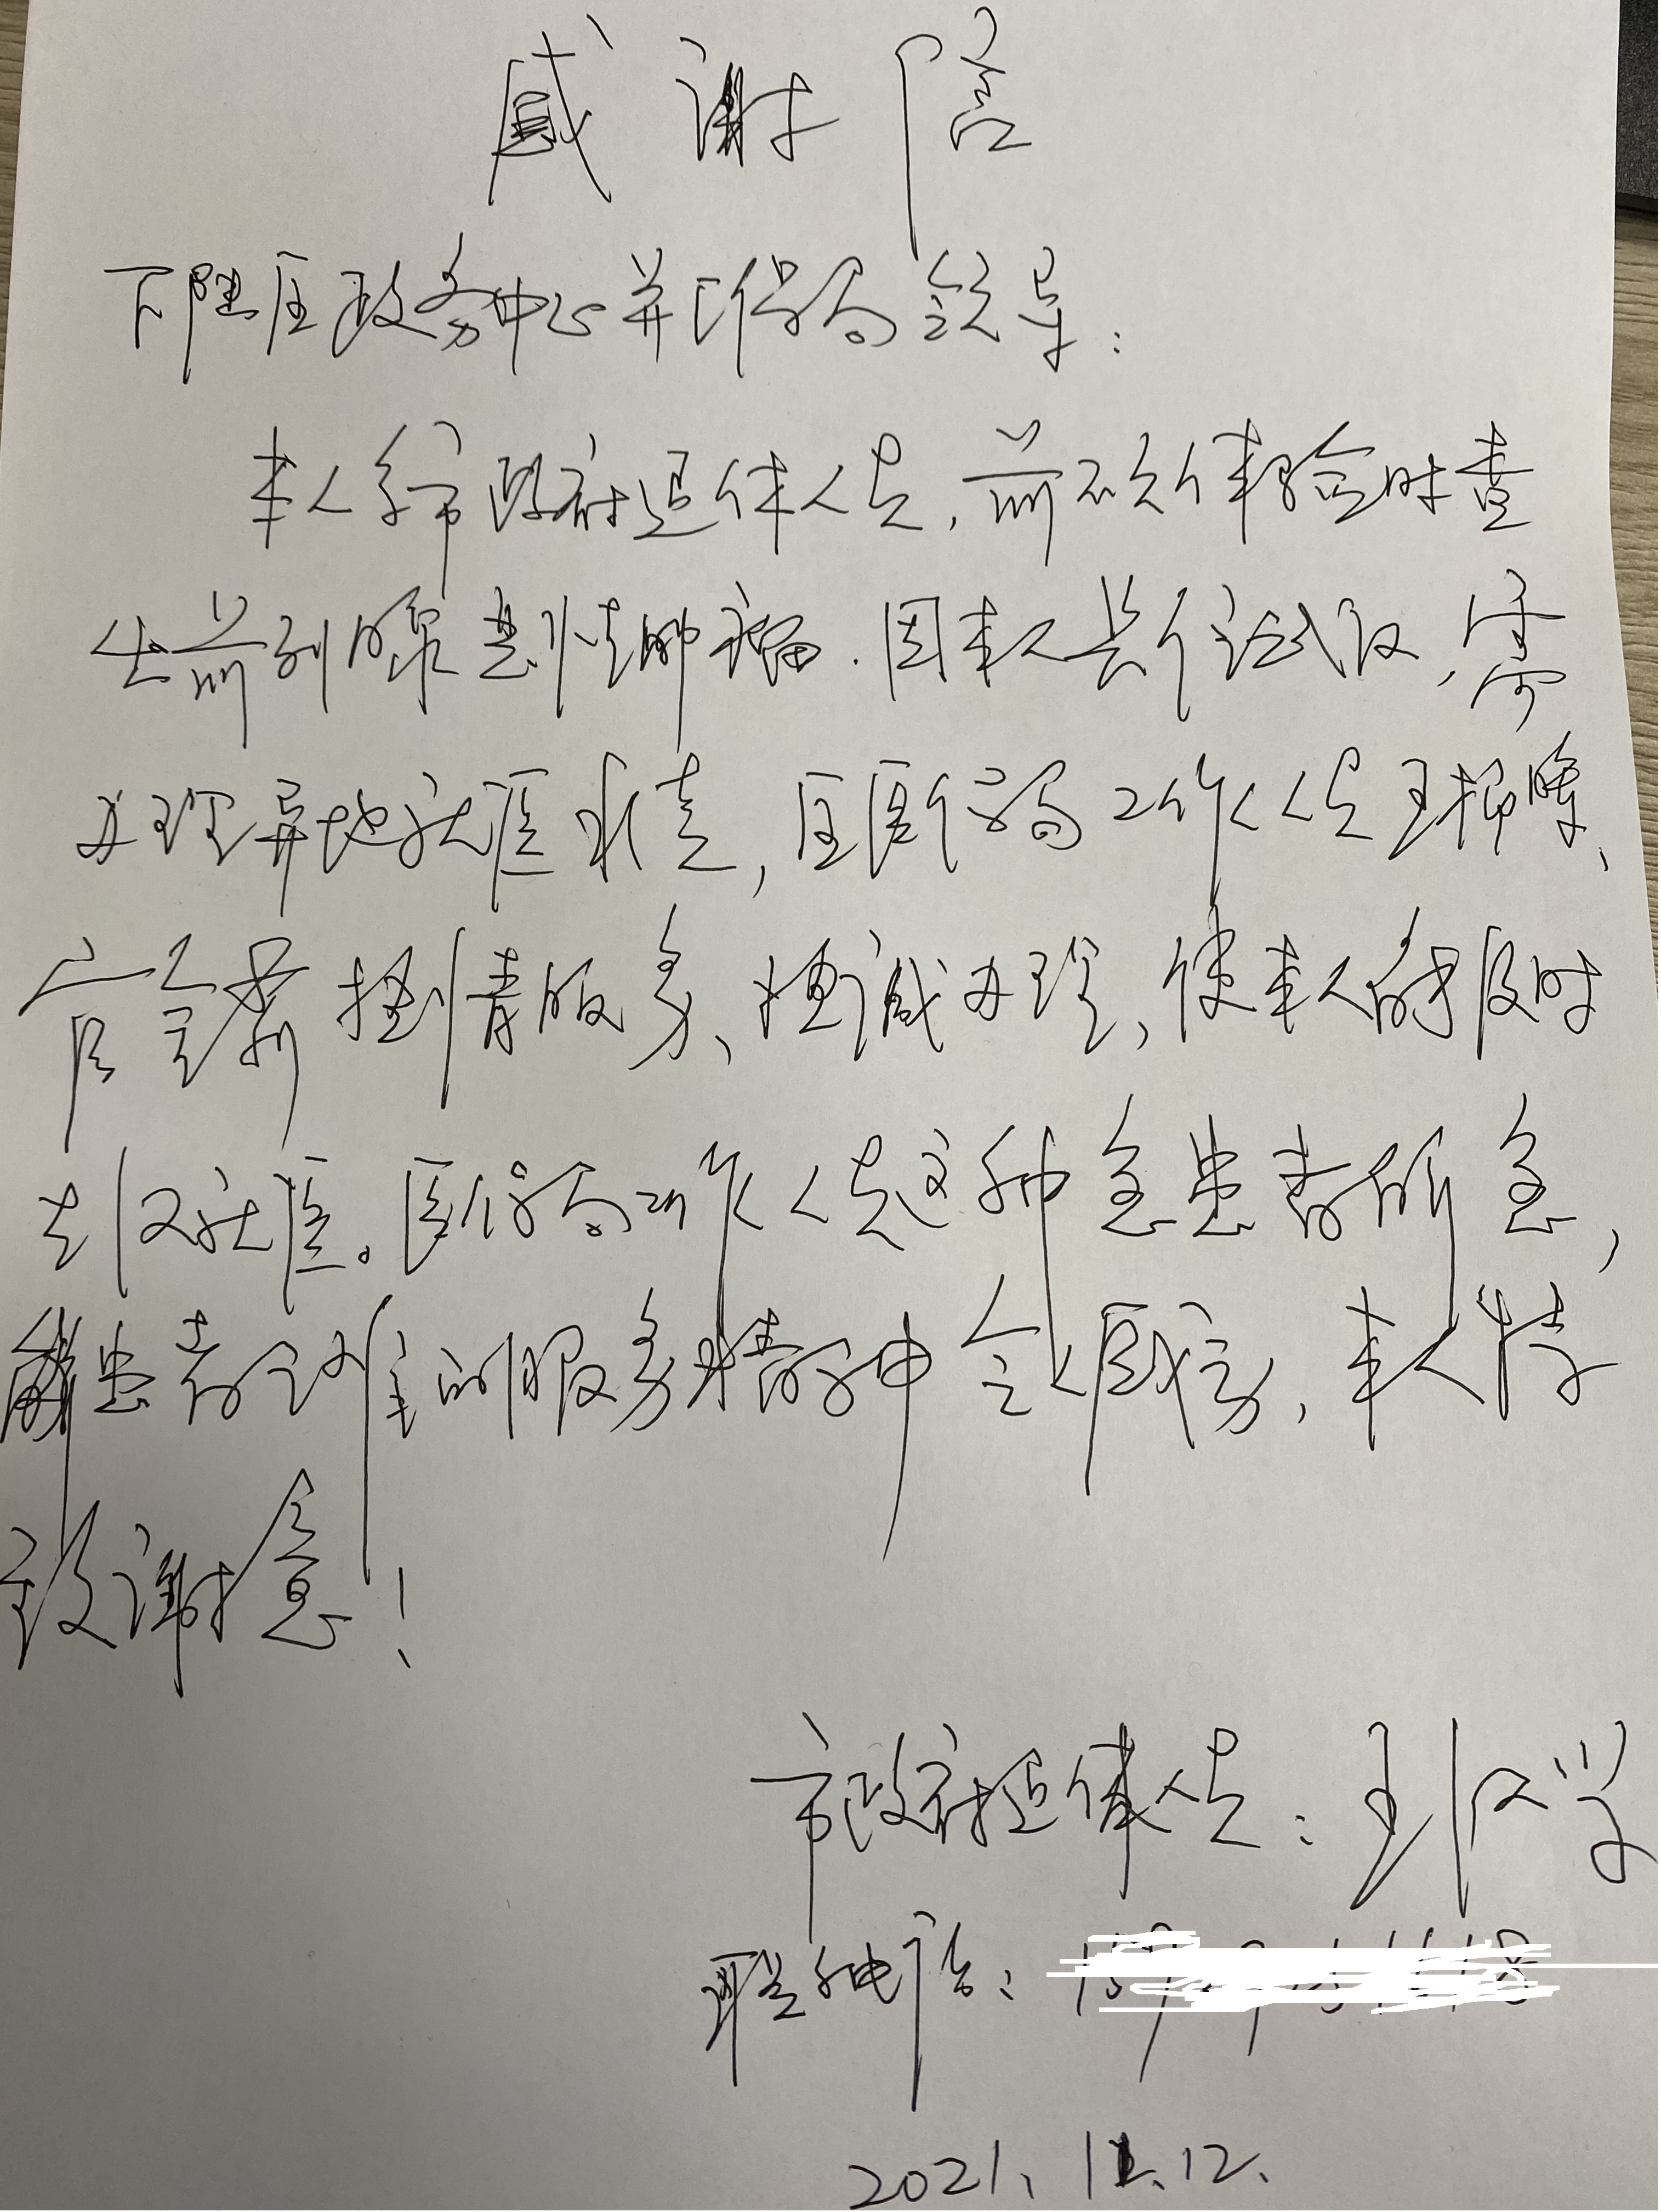 感谢信
下陆区政务中心并医保局领导：
本人系市政府退休人员，前不久体检时查
出前列腺恶性肿瘤．因本人长住武汉，需
办理异地就医手续，区医保局工作人员王
热情服务、热诚办理，使本人能及时
去汉就医。医保局工作人员这种急患者所急，
解患者之难的服务精神令人感动，本人特
致谢意！
市政府退休人员：王汉学
联系电话：
2021.11.12.